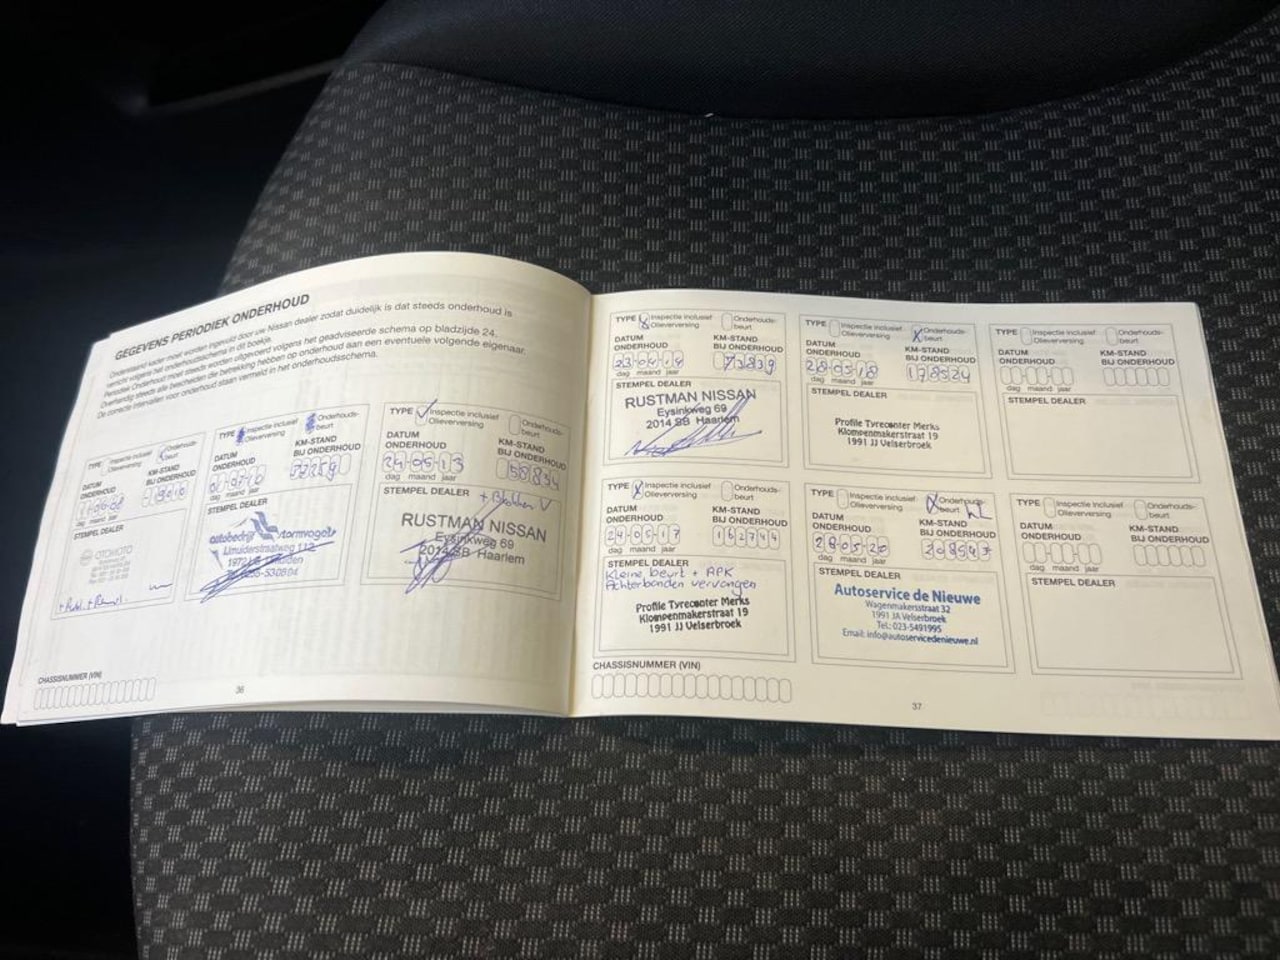 GEGEVENS PERIODIEK ONDERHOUD
Onderstaand kader moet worden ingevuld door uw Nissan dealer zodat duidelijk is dat steeds onderhoud is
verricht volgens het onderhoudsschema in dit boekje.
Periodiek Onderhoud moet steeds worden uitgevoerd volgens het geadviseerde schema op bladzijde 24.
Overhandig steeds alle bescheiden die betrekking hebben op onderhoud aan een eventuele volgende eigenaar.
De correcte intervallen voor onderhoud staan vermeld in het onderhoudsschema.
TYPE Inspectie inclusief Olieverversing Onderhouds-beurt
DATUM ONDERHOUD
KM-STAND BIJ ONDERHOUD
dag maand jaar
STEMPEL DEALER
OTOMOTO
TYPE Inspectie inclusief Olieverversing Onderhouds-beurt
DATUM ONDERHOUD
KM-STAND BIJ ONDERHOUD
dag maand jaar
STEMPEL DEALER
autobedrijf Stormvogels
IJmuiderstraatweg 112
TYPE Inspectie inclusief Olieverversing Onderhouds-beurt
DATUM ONDERHOUD
KM-STAND BIJ ONDERHOUD
24 05 13
58834
dag maand jaar
STEMPEL DEALER
RUSTMAN NISSAN
Eysinkweg 69
2014 SB Haarlem
CHASSISNUMMER (VIN)
36
TYPE Inspectie inclusief Olieverversing Onderhouds-beurt
DATUM ONDERHOUD
KM-STAND BIJ ONDERHOUD
23 04 14
73839
dag maand jaar
STEMPEL DEALER
RUSTMAN NISSAN
Eysinkweg 69
2014 SB Haarlem
TYPE Inspectie inclusief Olieverversing Onderhouds-beurt
DATUM ONDERHOUD
KM-STAND BIJ ONDERHOUD
28 05 18
178524
dag maand jaar
STEMPEL DEALER
Profile Tyrecenter Merks
Klompenmakerstraat 19
1991 JJ Velserbroek
TYPE Inspectie inclusief Olieverversing Onderhouds-beurt
DATUM ONDERHOUD
KM-STAND BIJ ONDERHOUD
dag maand jaar
STEMPEL DEALER
TYPE Inspectie inclusief Olieverversing Onderhouds-beurt
DATUM ONDERHOUD
KM-STAND BIJ ONDERHOUD
24 05 17
162744
dag maand jaar
STEMPEL DEALER
Kleine beurt + APK
Achterbanden vervangen
Profile Tyrecenter Merks
Klompenmakerstraat 19
1991 JJ Velserbroek
TYPE Inspectie inclusief Olieverversing Onderhouds-beurt
DATUM ONDERHOUD
KM-STAND BIJ ONDERHOUD
28 05 20
dag maand jaar
STEMPEL DEALER
Autoservice de Nieuwe
Wagenmakersstraat 32
1991 JA Velserbroek
Tel.: 023-5491995
Email: info@autoservicedenieuwe.nl
TYPE Inspectie inclusief Olieverversing Onderhouds-beurt
DATUM ONDERHOUD
KM-STAND BIJ ONDERHOUD
dag maand jaar
STEMPEL DEALER
CHASSISNUMMER (VIN)
37